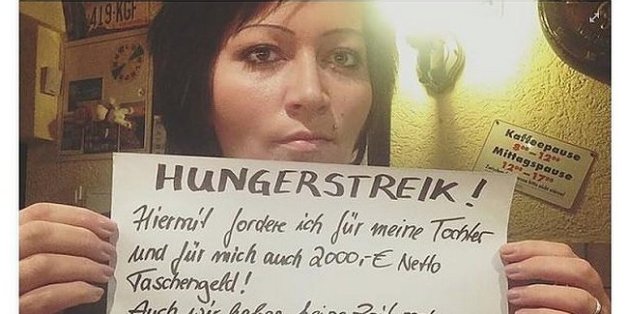 419-KGF
Kaffeepause
8⁰⁰ – 12⁰⁰
Mittagspause
12⁰⁰ – 17⁰⁰
HUNGERSTREIK!
Hiermit fordere ich für meine Tochter
und für mich auch 2000,-€ Netto
Taschengeld!
Auch wir haben keine Zeit